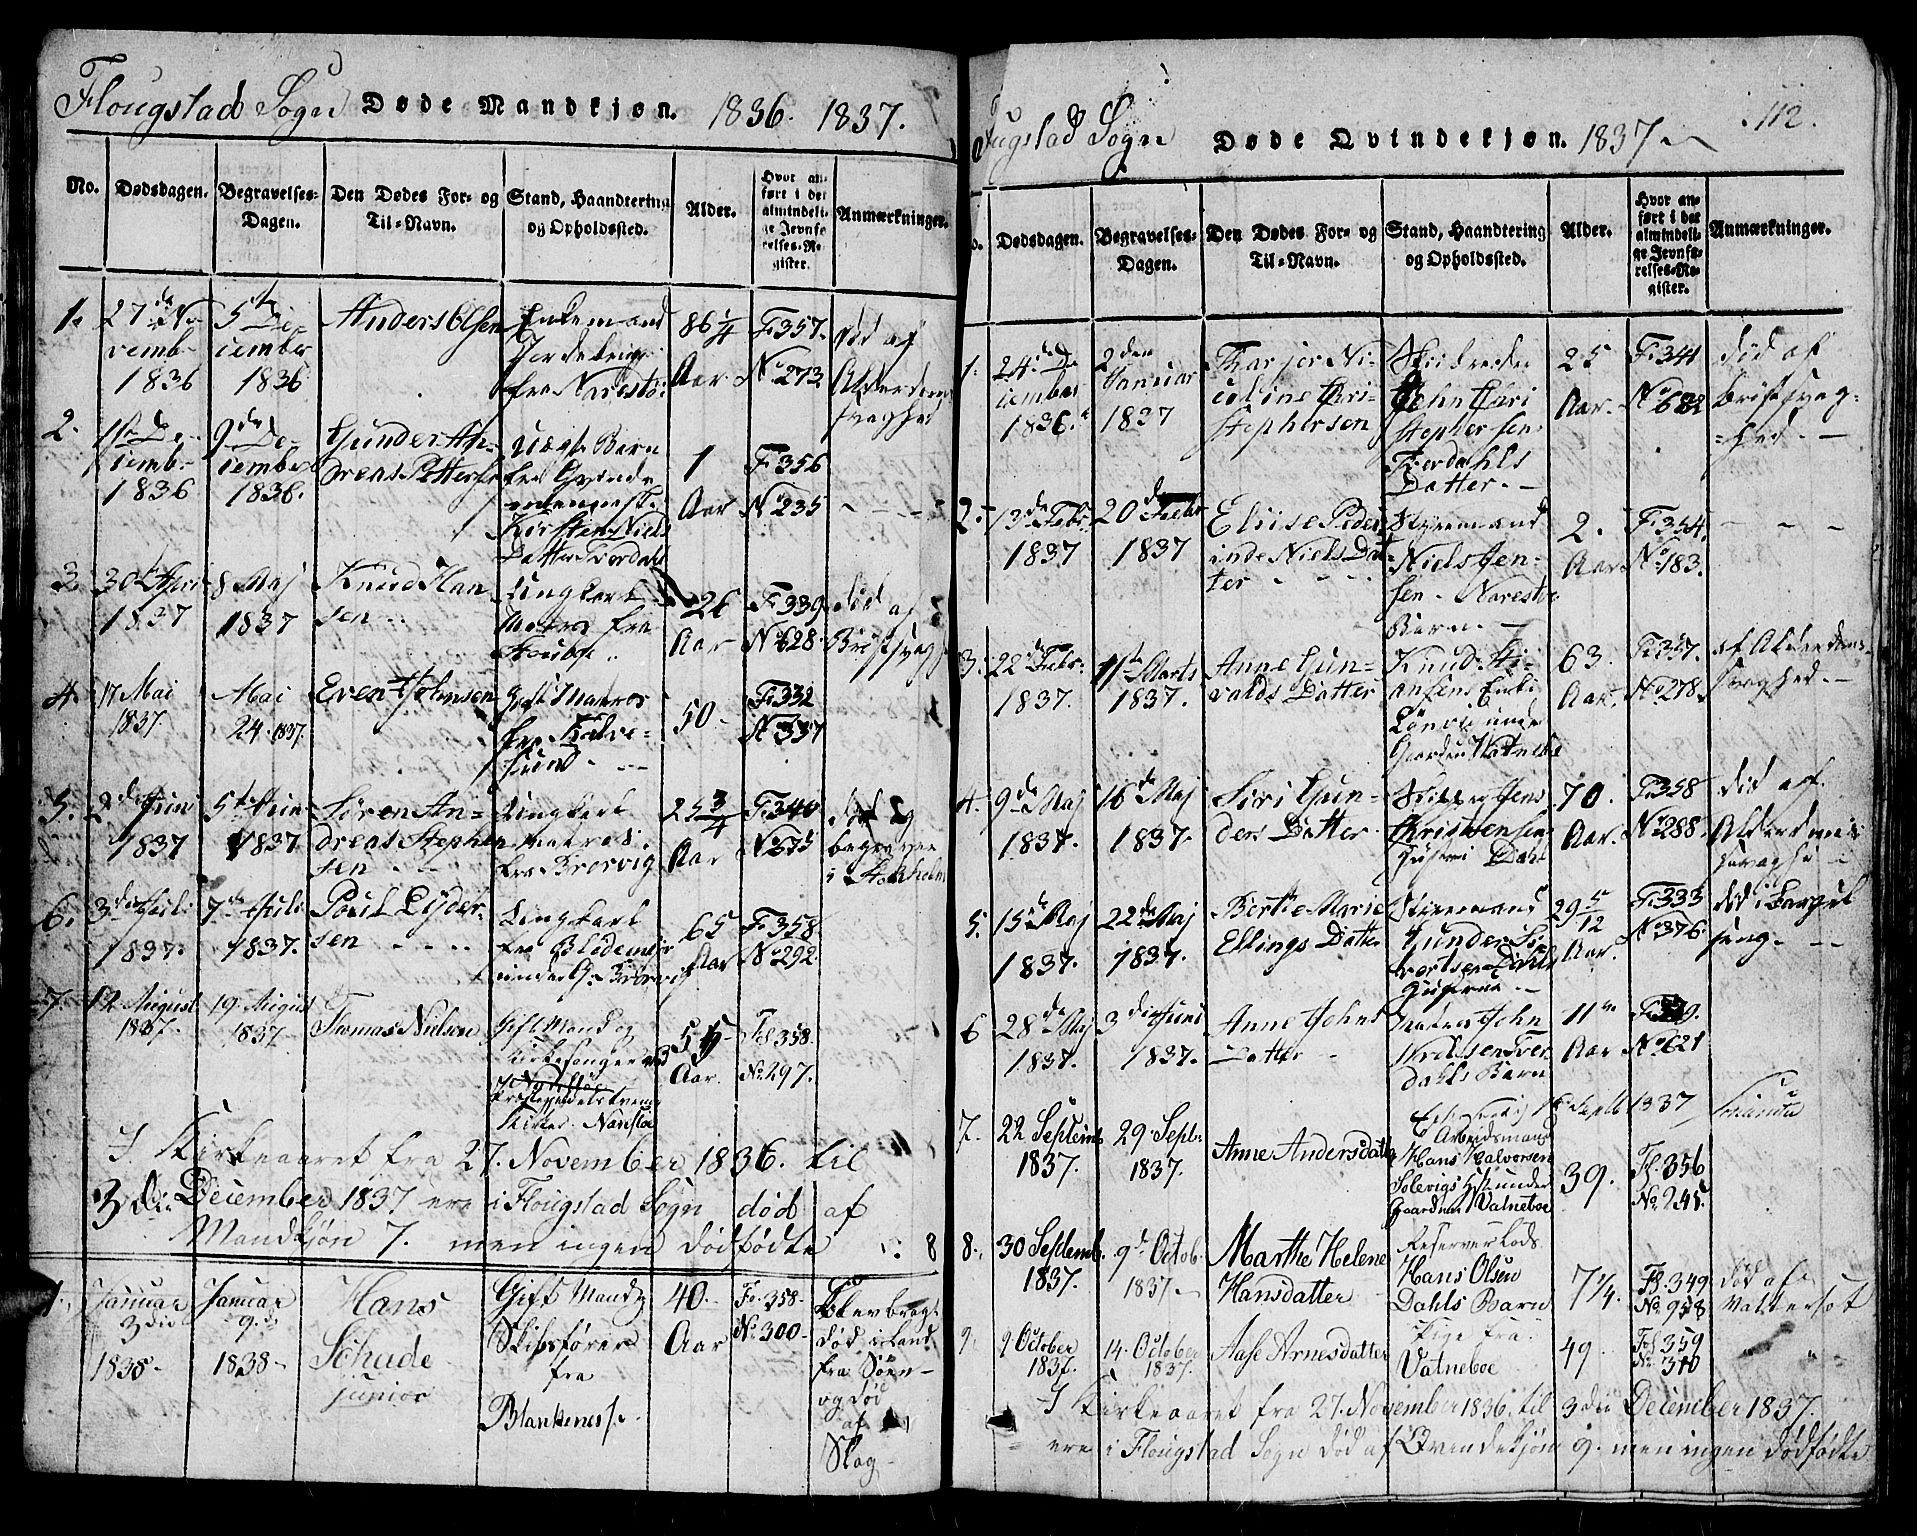 Flougstad Sogn Døde Mandkjøn. 1836. 1837.
No. Dødsdagen. Begravelses-Dagen. Den Dødes For- og Til-Navn. Stand, Haandtering og Opholdssted. Alder. Hvor anført i det almindelige Jevnførelses-Register. Anmærkninger.
1. 27de No-
vemb-
1836
5te De-
cember
1836
Anders Olsen
Enkemand
fra Narestø
86 1/4
Aar
F. 357.
No 273
død af
Alderdoms
svaghed
2. 1ste De-
cemb-
1836
9de De-
cember
1836.
Gunder An-
dreas Petterse
Uægte Barn
Kirsten Niels
Datter Tverdahl
1
Aar
F 356
No 235
3. 30te Apri
1837
8 Maj
1837
Knud Han
sen
Ungkarl
Matros fra
26
Aar
F. 339
No 628.
død af
Brystsvagh
4. 17 Mai
1837
Mai
24. 1837.
Even Johnsen
Gift Matros
fra Kalve-
sund
50
F. 332
No 337
5. 2de Juni
1837
5te Juni
1837
Søren An-
dreas Stephen
sen
Ungkarl
Matros
fra Brorvig
25 3/4
Aar
F. 340
No 275
død og
begraven
i Stokholm
6. 3de Juli
1837.
7de Juli
1837.
Poul Lyder-
sen
Ungkarl
fra Bledemyr
under G. Brorvig
65
Aar
F. 358.
No 292.
7. 12 August
1837.
19. August
1837.
Thomas Nielsen
Gift Mand og
Kirkesanger ved
Kirker. Narestøe
55
Aar.
Fol 358.
No. 297.
I Kirkeaaret fra 27. November 1836. til
3die December 1837 ere i Flougstad Sogn død af
Mandkjøn 7. men ingen dødfødte
1. Januar
3die
1838
Januar
9.
1838
Hans
Schade
junior
Gift Mand og
Skibsfører
fra
Blankenese
40.
Aar
Fo. 358
No. 300
Blev bragt
død i Land
fra Søen
og død
af
Slag
Fugstad Sogn Døde Qvindekjøn. 1837
112.
No. Dødsdagen. Begravelses-Dagen. Den Dødes For- og Til-Navn. Stand, Haandtering og Opholdssted. Alder. Hvor anført i det almindelige Jevnførelses-Register. Anmærkninger.
1. 24de De
cember
1836.
2den
Januar
1837
Tharjer Ni-
coline Chri-
stophersen
Skibreder
John Chri
stophersen
Tverdahls
Datter.
25
Aar.
F. 341
No 632
død af
Brystsvag-
hed.
2. 13de Febr.
1837
20de Febr
1837
Elise Peder
inde Niels Dat-
ter
Styrmand
Niels Jen-
sen Narestø
Barn.
2.
Aar
F. 354.
No. 183.
3. 22de Febr.
1837.
1ste Marts
1837.
Anne Gun-
valds Datter
Knud
under
Gaarden Vatnebo
63.
Aar.
F. 357.
No 278
af Alderdoms-
svaghed.
4. 9de Maj
1837.
16de Maj
1837.
Siri Gun-
ders Datter
Skipper Jens
Christensen
Dahl
70.
Aar.
F. 358
No 288.
død af
Alderdoms
svaghed
5. 15de Maj
1837.
22de Maj
1837.
Berthe Marie
Ellings Datter
Styrmand
Gunder Si-
vertsen Dahls
Hustrue
29 5/12
Aar.
F. 333
No 376
død i Barsel
seng
6 28de Maj
1837.
3die Juni
1837.
Anne Johns
Datter
Matros John
Nielsen Tver
dahls Barn
11
Aar
No 621
7. 22 Septemb
1837.
29. Septb.
1837.
Anne Andersdatter
Arbeidsmand
Hans Halvorsen
Solevigs H. under
Gaarden Vatneboe
39.
Ff. 356
No. 245.
8. 30 Septemb.
1837.
9d Octob.
1837.
Marthe Helene
Hansdatter
Reserver Lods
Hans Olsen
Dahls Barn
7 1/4.
Ff. 349
No. 958
død af
Vattersot
9. 9 October
1837.
14. October
1837.
Aase Arnesdatter
Pige fra
Vatneboe
49
Fol 359
No. 310
I Kirkeaaret fra 27. November 1836. til 3die December 1837.
ere i Flougstad Sogn død af Qvindekjøn 9. men ingen dødfødte